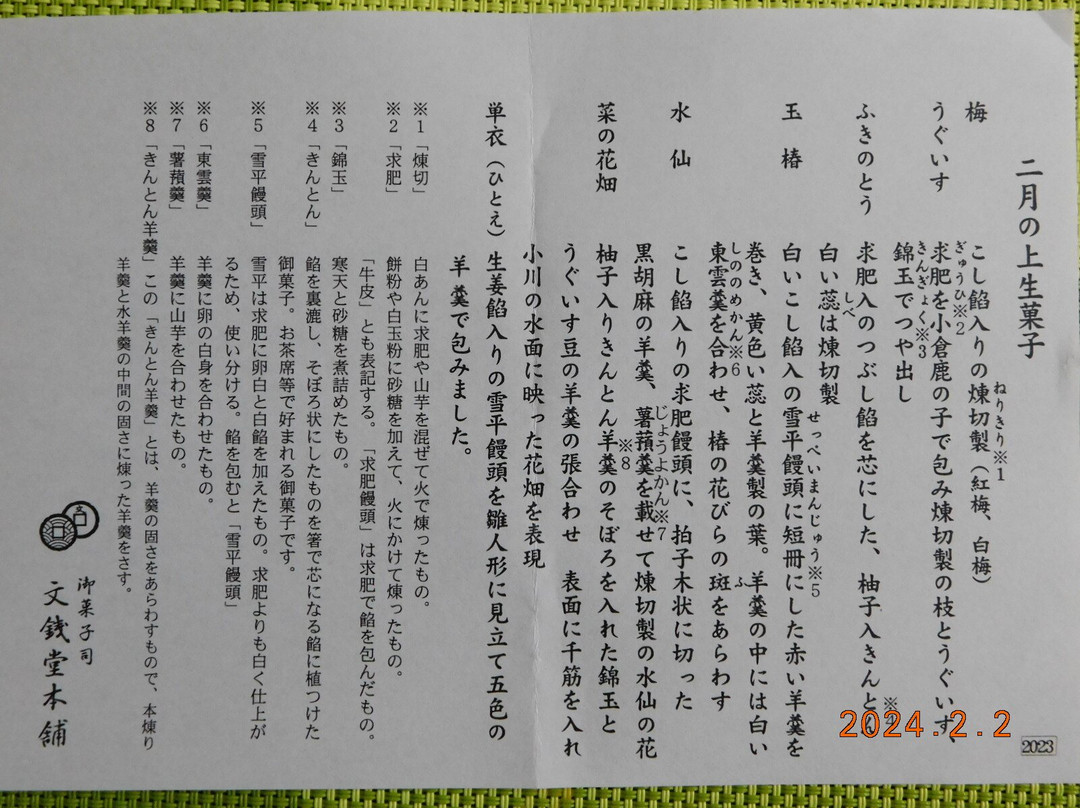 二月の上生菓子
梅　こし餡入りの煉切製（紅梅、白梅）
ねりきり※1
うぐいす　求肥を小倉鹿の子で包み煉切製の枝とうぐいす、
ぎゅうひ※2
錦玉でつや出し
きんぎょく※3
ふきのとう　求肥入のつぶし餡を芯にした、柚子入きんとん
※4
白い蕊は煉切製
しべ
玉椿　白いこし餡入の雪平饅頭に短冊にした赤い羊羹を
せっぺいまんじゅう※5
巻き、黄色い蕊と羊羹製の葉。羊羹の中には白い
東雲羹を合わせ、椿の花びらの斑をあらわす
しののめかん※6
ふ
水仙　こし餡入りの求肥饅頭に、拍子木状に切った
黒胡麻の羊羹、薯蕷羹を載せて煉切製の水仙の花
じょうよかん※7
菜の花畑　柚子入りきんとん羊羹のそぼろを入れた錦玉と
※8
うぐいす豆の羊羹の張合わせ　表面に千筋を入れ
小川の水面に映った花畑を表現
単衣（ひとえ）生姜餡入りの雪平饅頭を雛人形に見立て五色の
羊羹で包みました。
※1「煉切」　白あんに求肥や山芋を混ぜて火で煉ったもの。
※2「求肥」　餅粉や白玉粉に砂糖を加えて、火にかけて煉ったもの。
「牛皮」とも表記する。「求肥饅頭」は求肥で餡を包んだもの。
※3「錦玉」　寒天と砂糖を煮詰めたもの。
※4「きんとん」　餡を裏漉し、そぼろ状にしたものを箸で芯になる餡に植つけた
御菓子。お茶席等で好まれる御菓子です。
※5「雪平饅頭」　雪平は求肥に卵白と白餡を加えたもの。求肥よりも白く仕上が
るため、使い分ける。餡を包むと「雪平饅頭」
※6「東雲羹」　羊羹に卵の白身を合わせたもの。
※7「薯蕷羹」　羊羹に山芋を合わせたもの。
※8「きんとん羊羹」この「きんとん羊羹」とは、羊羹の固さをあらわすもので、本煉り
羊羹と水羊羹の中間の固さに煉った羊羹をさす。
御菓子司
文銭堂本舗
2023
2024.2.2